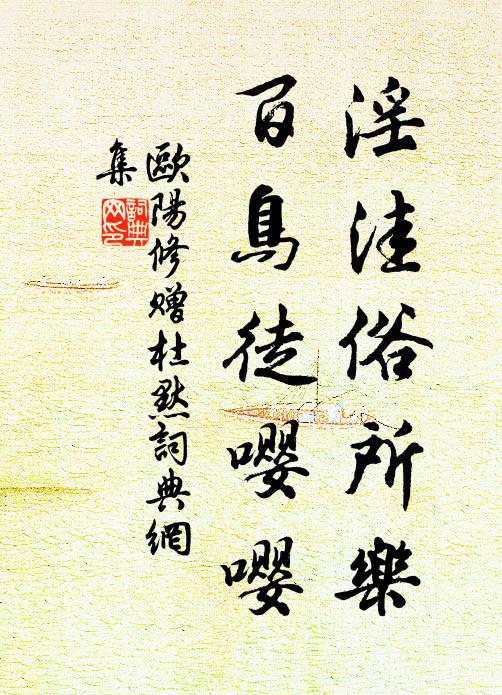 淫洼俗所樂
百鳥徒嚶嚶
歐陽修贈杜默詞典網
集
詞典
网印